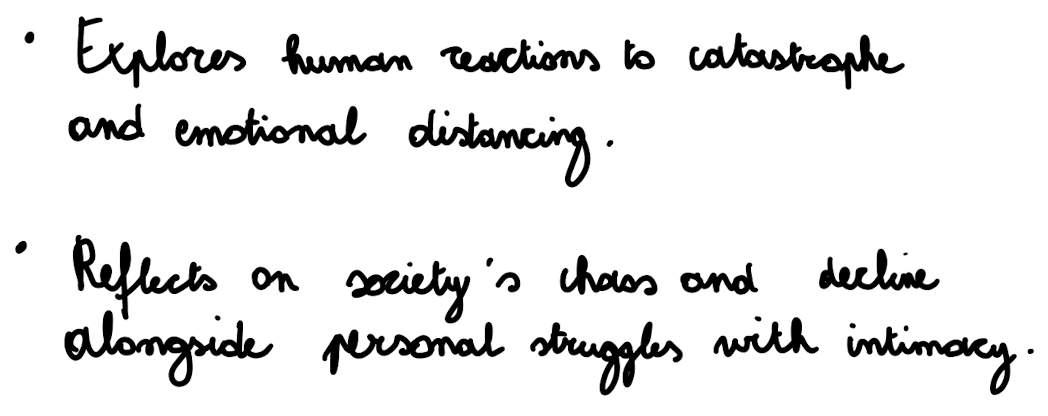 • Explores human reactions to catastrophe
and emotional distancing.
• Reflects on society's chaos and decline
alongside personal struggles with intimacy.